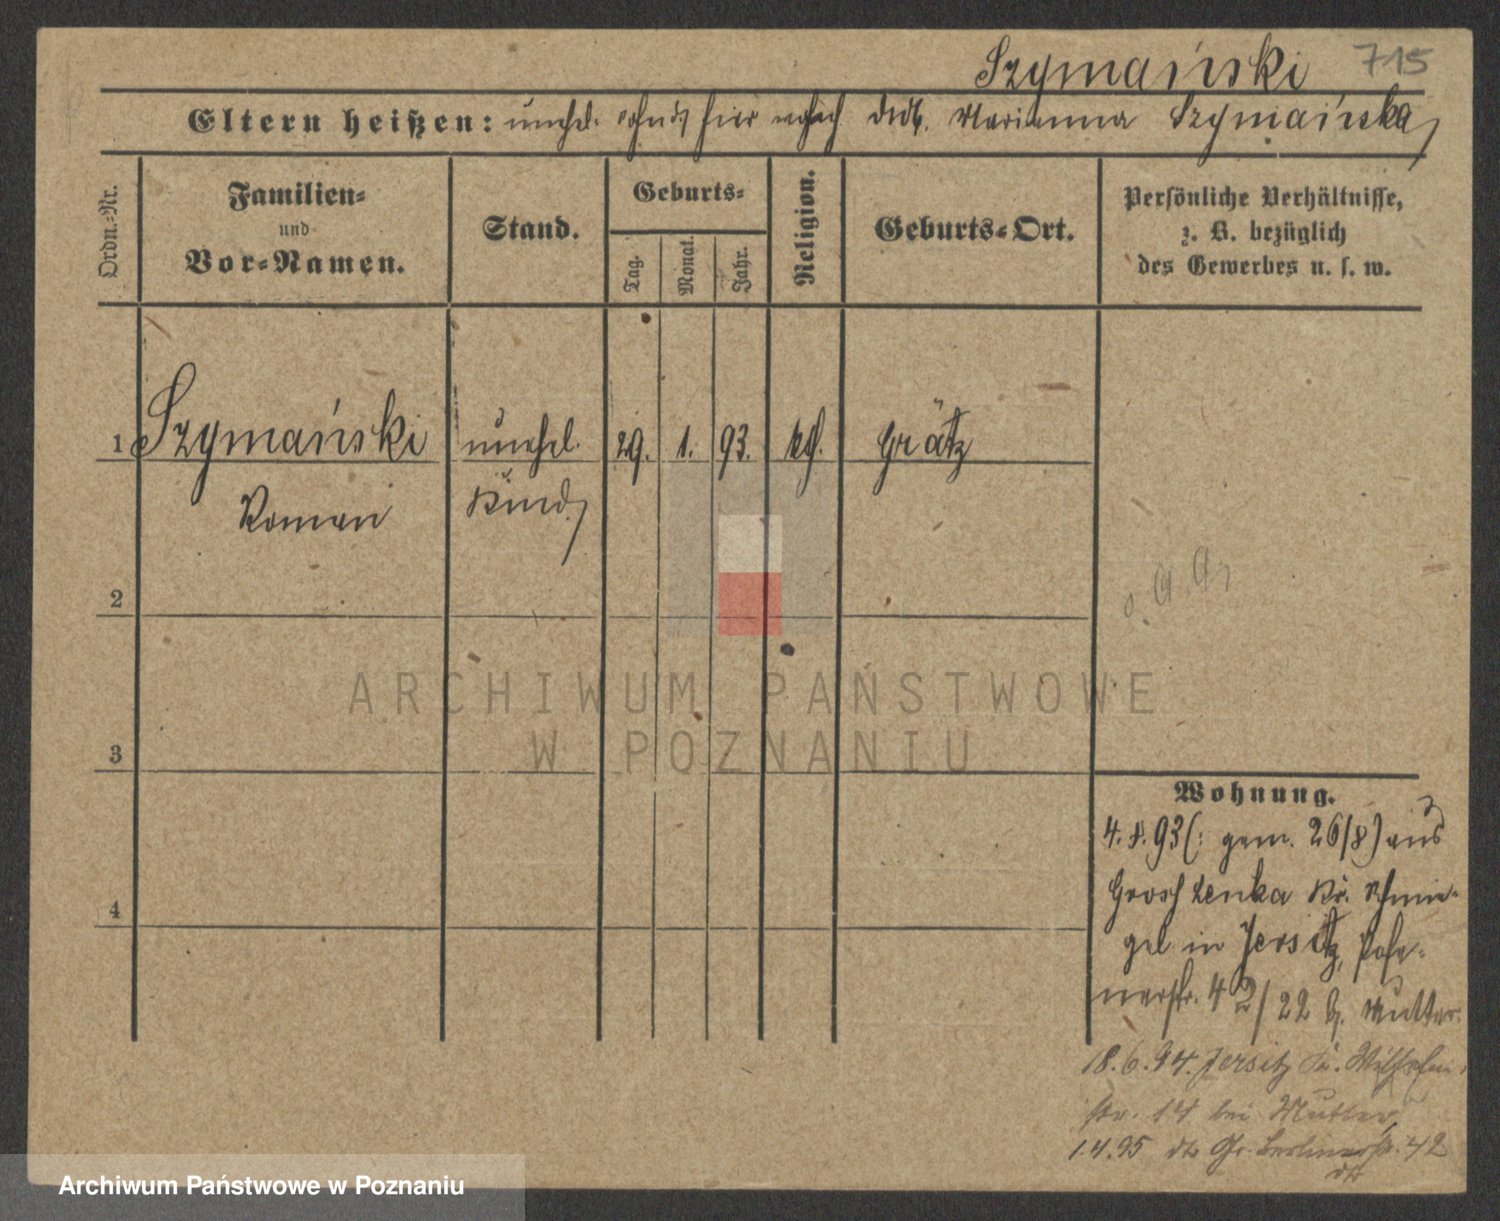 Szymański 715
Eltern heißen: unehel. Marianna Szymańska,
Ordn.=Nr.
Familien=
und
Vor=Namen.
Stand.
Geburts=
Tag.
Monat.
Jahr.
Religion.
Geburts=Ort.
Persönliche Verhältnisse,
z. B. bezüglich
des Gewerbes u. s. w.
1 Szymański unehel. 29. 1. 93. Grätz
Roman Kind,
2
3
4
ARCHIWUM PAŃSTWOWE
W POZNANIU
Wohnung.
4. 8. 93 (: gem. 26/8) aus
Grosch Lenka Kr. Schmie-
gel in Jersitz, Pose-
nerstr. 4 / 22 b. Mutter.
18.6.94. Jersitz Kr. Wilhelm
str. 14 bei Mutter,
1.4.95 Gr. Berlinerstr. 42
Archiwum Państwowe w Poznaniu